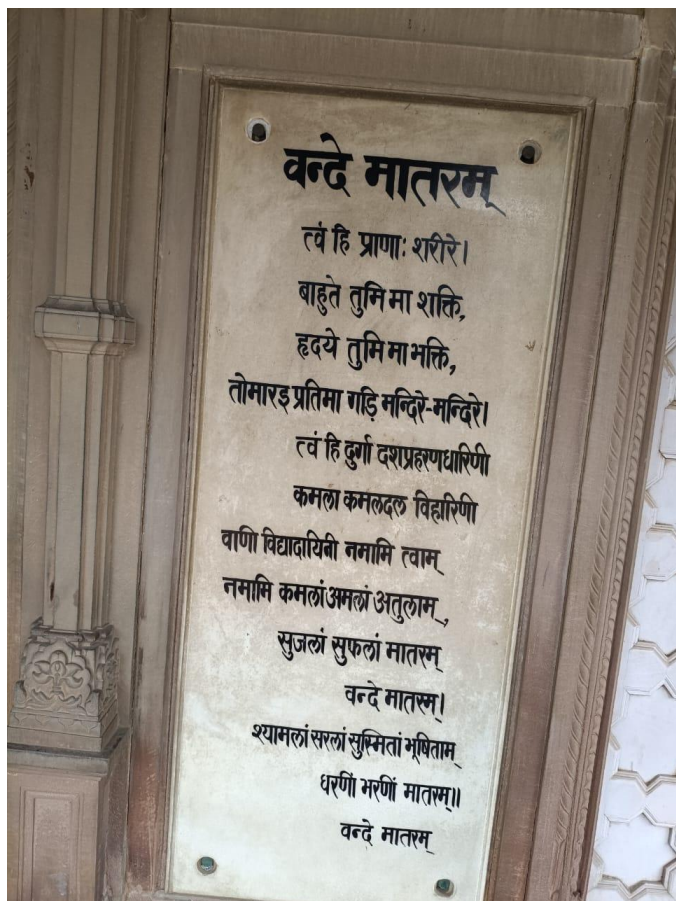 वन्दे मातरम्
त्वं हि प्राणाः शरीरे।
बाहुते तुमि मा शक्ति,
हृदये तुमि मा भक्ति,
तोमारइ प्रतिमा गड़ि मन्दिरे-मन्दिरे।
त्वं हि दुर्गा दशप्रहरणधारिणी
कमला कमलदल विहारिणी
वाणी विद्यादायिनी नमामि त्वाम्
नमामि कमलां अमलां अतुलाम्,
सुजलां सुफलां मातरम्
वन्दे मातरम्।
श्यामलां सरलां सुस्मितां भूषिताम्
धरणीं भरणीं मातरम्॥
वन्दे मातरम्